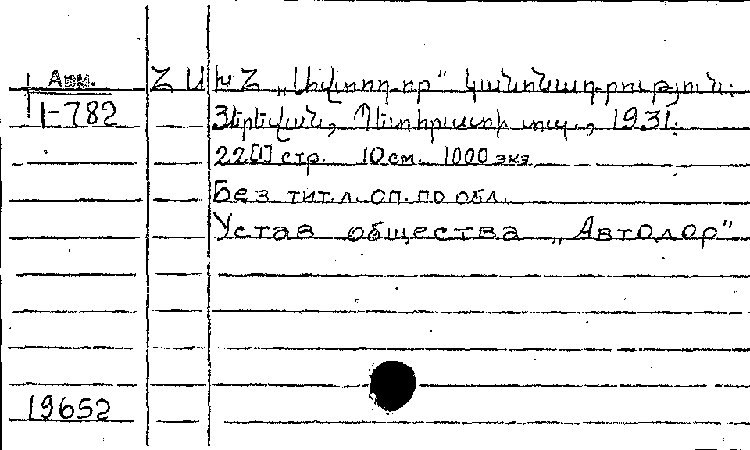 Арм.
1-782
Հ Ա Խ Հ „Ավտոդոր" կանոնադրություն:
Յերեվան, Պետհրատի տպ., 1931:
22[1] стр. 10 см. 1000 экз.
Без тит. л. оп. по обл.
Устав общества „Автодор"
19652